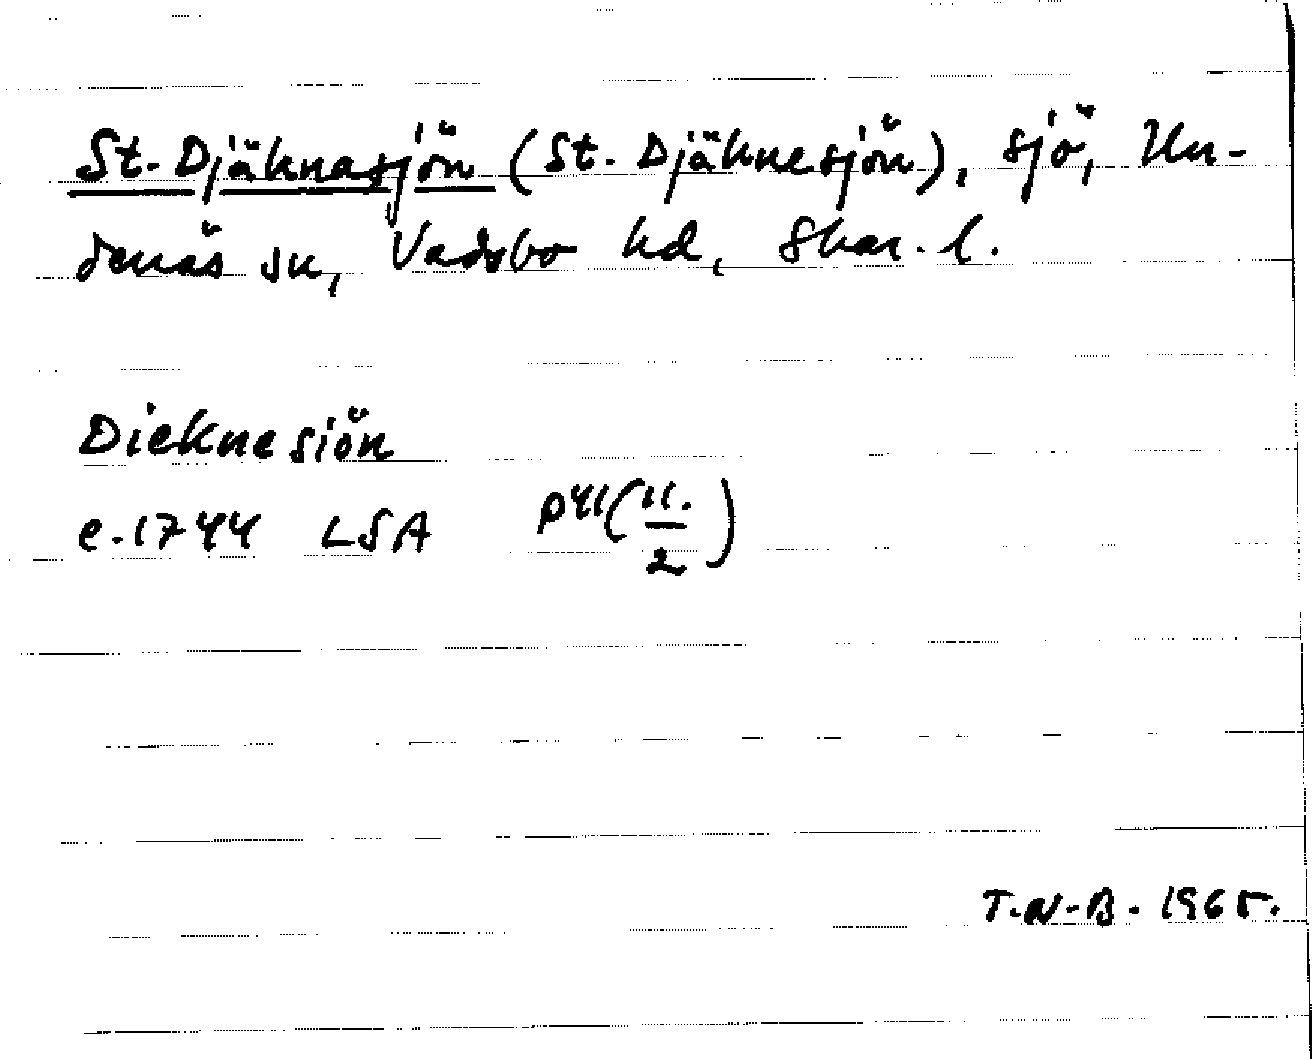 St. Djäknasjön (St. Djäknesjön), sjö, Un-
denäs sn, Vadsbo hd, Skar. l.
Dieknesiön
e. 1744 LSA P41(11./2)
T.N-B. 1965.